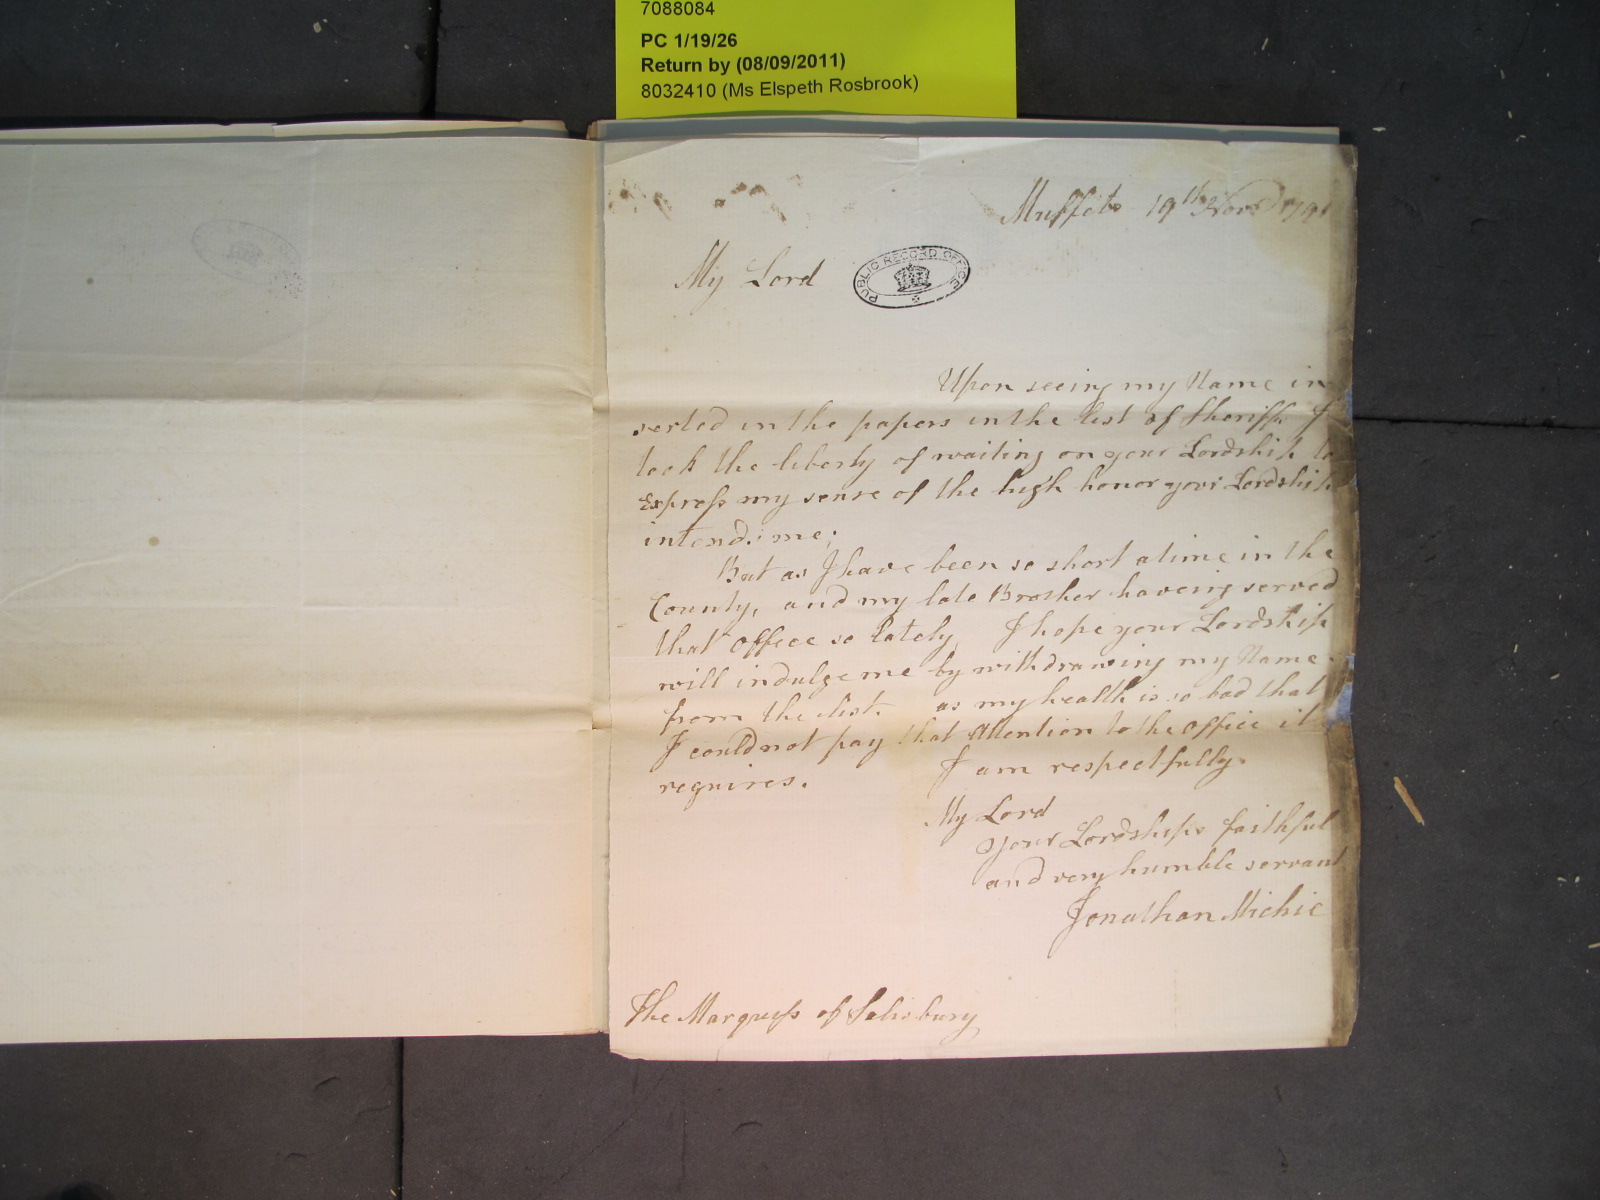 7088084
PC 1/19/26
Return by (08/09/2011)
8032410 (Ms Elspeth Rosbrook)
Muffets 19th Novr 179
My Lord
PUBLIC RECORD OFFICE
Upon seeing my Name in
serted in the papers in the list of Sheriffs I
took the liberty of waiting on your Lordship to
Express my sense of the high honor your Lordship
intends me;
But as I have been so short a time in the
County, and my late Brother having served
that office so lately I hope your Lordship
will indulge me by withdrawing my Name
from the list. as my health is so bad that
I could not pay that Attention to the office it
requires.
I am respectfully.
My Lord
your Lordships faithful
and very humble servant
Jonathan Michie
The Marquess of Salisbury